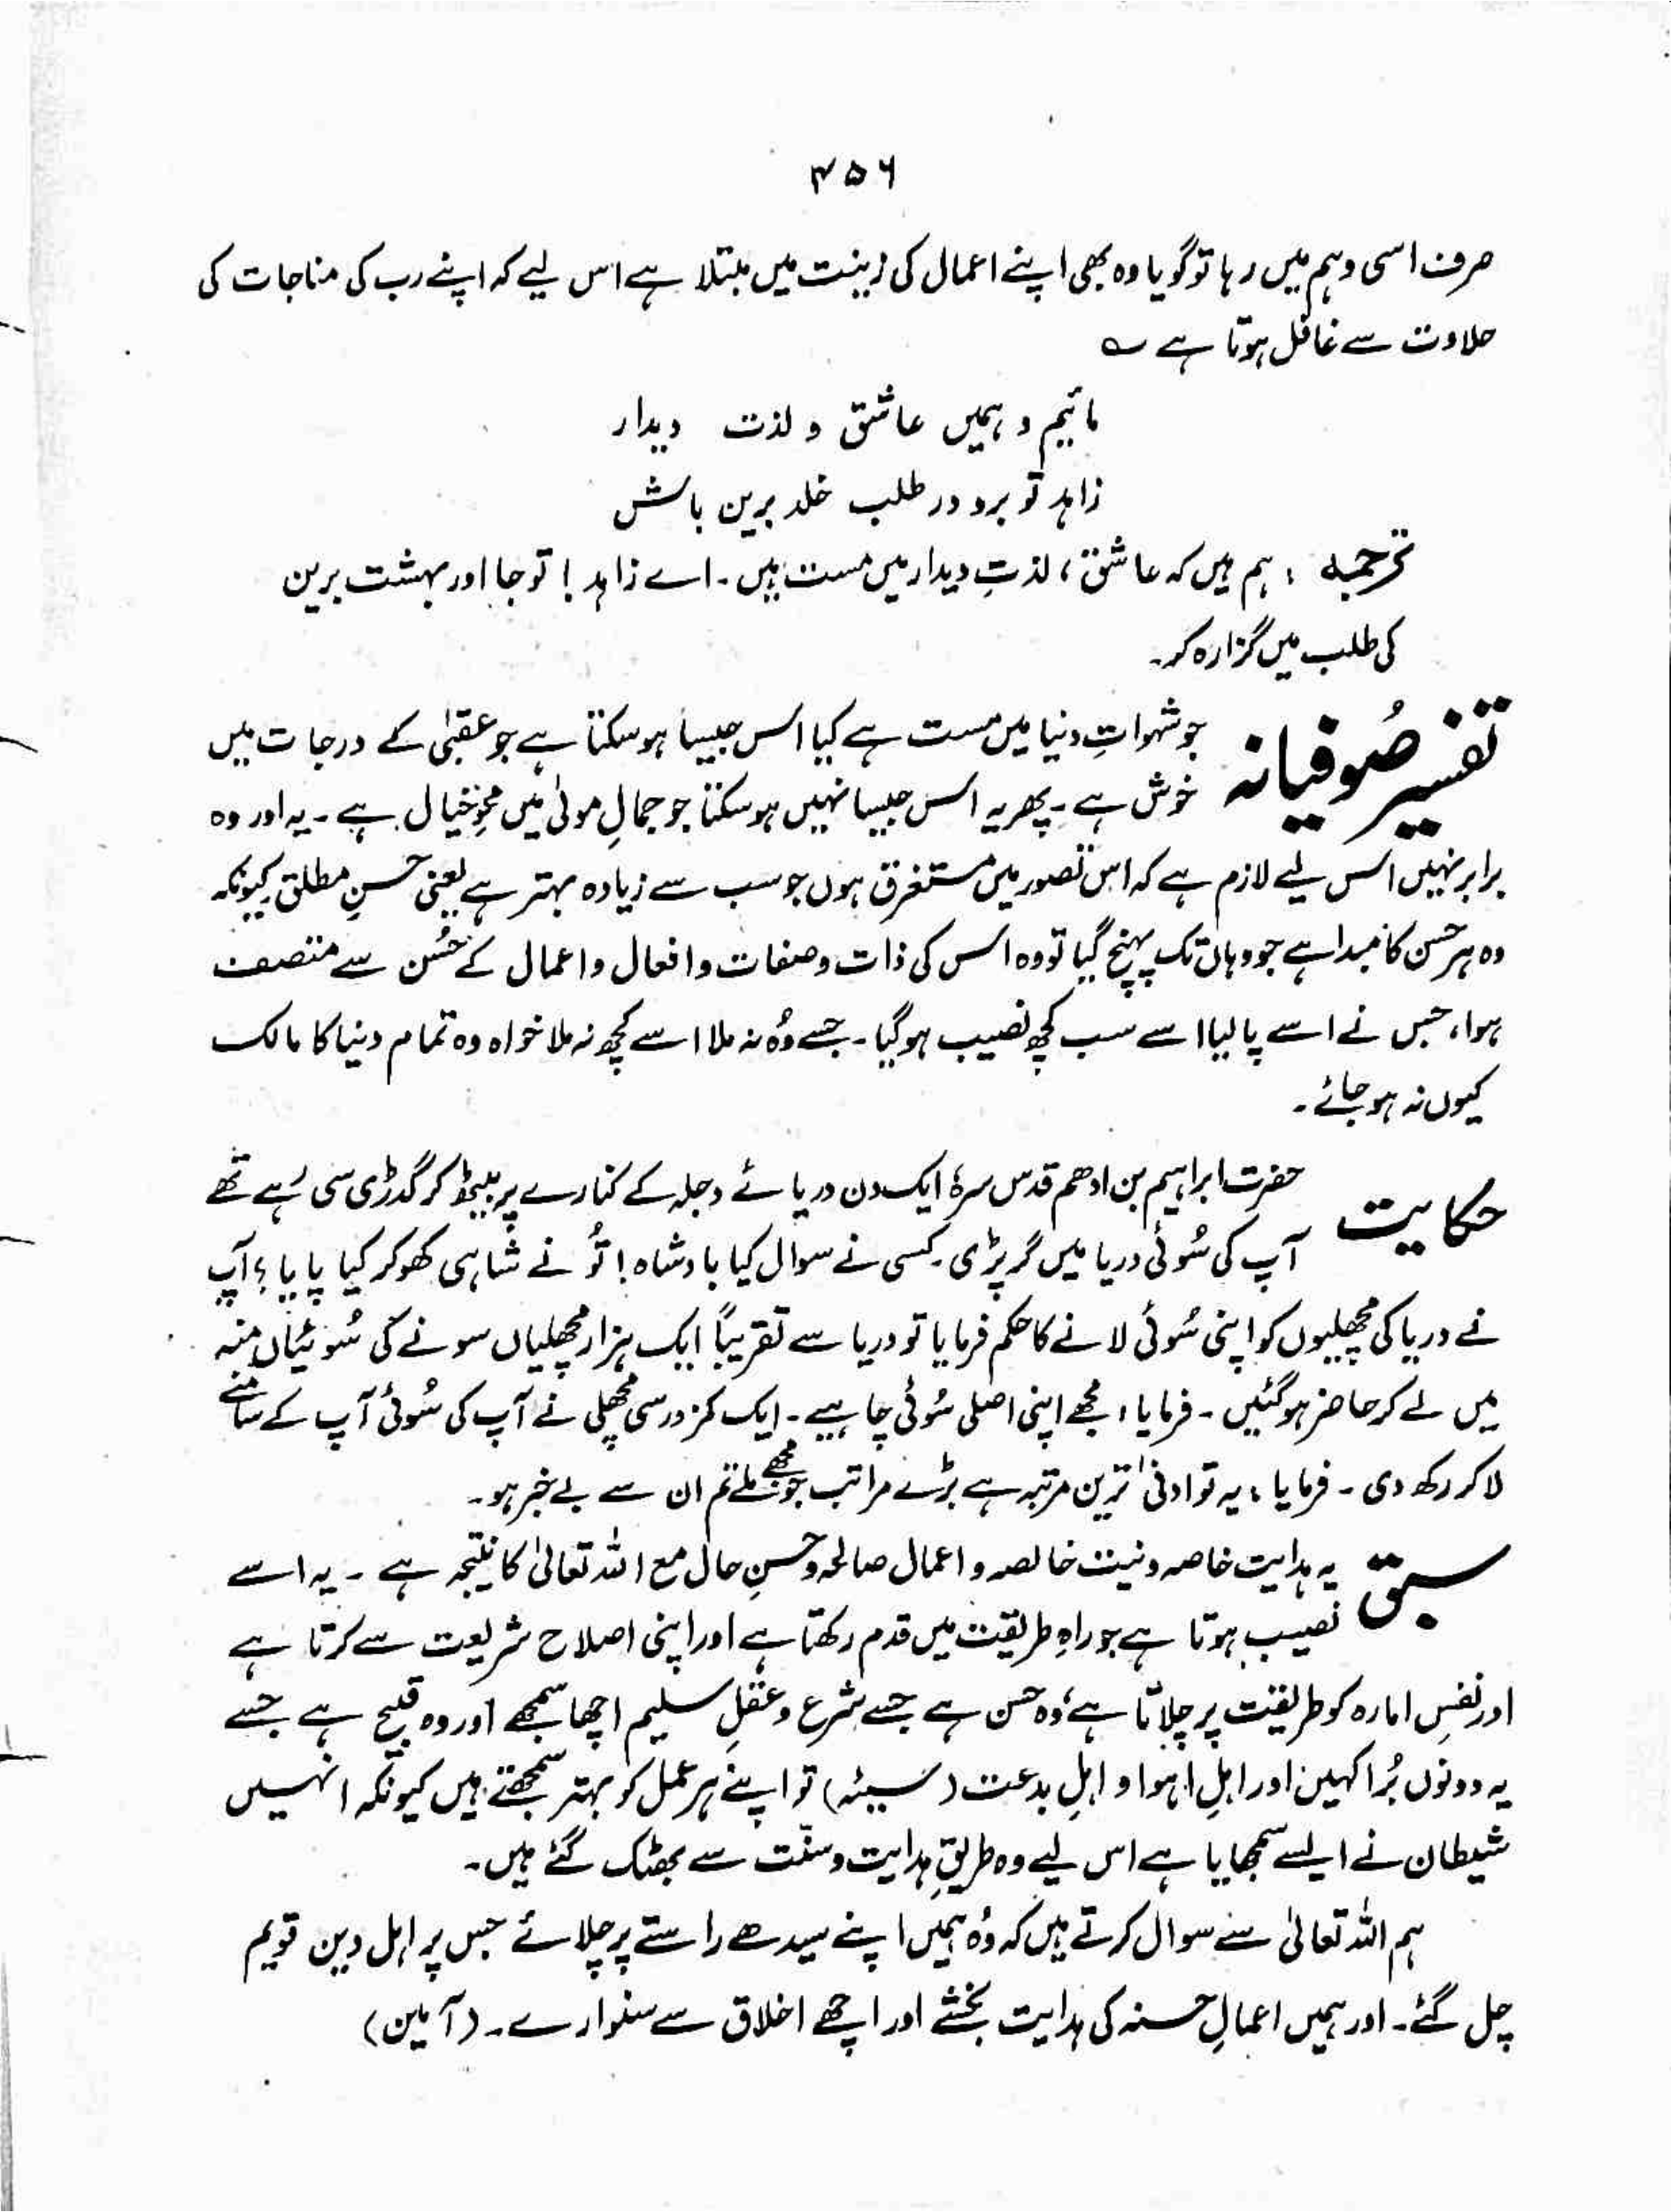 ۴۵۶
صرف اسی وہم میں رہا تو گویا وہ بھی اپنے اعمال کی زینت میں مبتلا ہے اس لیے کہ اپنے رب کی مناجات کی
حلاوت سے غافل ہوتا ہے ؎
مائیم و ہمیں عاشق و لذت دیدار
زاہد تو برو در طلب خلد برین باش
ترجمہ : ہم ہیں کہ عاشق، لذتِ دیدار میں مست ہیں۔ اے زاہد ! تو جا اور بہشت برین
کی طلب میں گزارہ کر۔
تفسیر صُوفیانہ جو شہواتِ دنیا میں مست ہے کیا اس جیسا ہو سکتا ہے جو عقبیٰ کے درجات میں
خوش ہے۔ پھر یہ اس جیسا نہیں ہو سکتا جو جمالِ مولیٰ میں محوِ خیال ہے ۔ یہ اور وہ
برابر نہیں اس لیے لازم ہے کہ اس تصور میں مستغرق ہوں جو سب سے زیادہ بہتر ہے یعنی حسنِ مطلق کیونکہ
وہ ہر حسن کا مبدا ہے جو وہاں تک پہنچ گیا تو وہ اس کی ذات و صفات و افعال و اعمال کے حُسن سے متصف
ہوا، جس نے اسے پالیا اسے سب کچھ نصیب ہو گیا۔ جسے وُہ نہ ملا اسے کچھ نہ ملا خواہ وہ تمام دنیا کا مالک
کیوں نہ ہو جائے ۔
حکایت حضرت ابراہیم بن ادھم قدس سرہٗ ایک دن دریائے دجلہ کے کنارے پر بیٹھ کر گدڑی سی رہے تھے
آپ کی سُوئی دریا میں گر پڑی۔ کسی نے سوال کیا بادشاہ ! تُو نے شاہی کھو کر کیا پایا ؟ آپ
نے دریا کی مچھلیوں کو اپنی سُوئی لانے کا حکم فرمایا تو دریا سے تقریباً ایک ہزار مچھلیاں سونے کی سُوئیاں منہ
میں لے کر حاضر ہو گئیں ۔ فرمایا ، مجھے اپنی اصلی سُوئی چاہیے ۔ ایک کمزور سی مچھلی نے آپ کی سُوئی آپ کے سامنے
لا کر رکھ دی ۔ فرمایا ، یہ تو ادنیٰ ترین مرتبہ ہے بڑے مراتب جو مجھے ملے تم ان سے بے خبر ہو۔
سبق یہ ہدایت خاصہ و نیت خالصہ و اعمال صالحہ و حسنِ حال مع اللہ تعالیٰ کا نتیجہ ہے ۔ یہ اسے
نصیب ہوتا ہے جو راہِ طریقت میں قدم رکھتا ہے اور اپنی اصلاح شریعت سے کرتا ہے
اور نفسِ امارہ کو طریقت پر چلاتا ہے، وہ حسن ہے جسے شرع و عقلِ سلیم اچھا سمجھے اور وہ قبیح ہے جسے
یہ دونوں بُرا کہیں اور اہلِ اہوا و اہلِ بدعت (سیئہ) تو اپنے ہر عمل کو بہتر سمجھتے ہیں کیونکہ انہیں
شیطان نے ایسے سمجھایا ہے اس لیے وہ طریقِ ہدایت و سنّت سے بھٹک گئے ہیں۔
ہم اللہ تعالیٰ سے سوال کرتے ہیں کہ وُہ ہمیں اپنے سیدھے راستے پر چلائے جس پر اہل دین قویم
چل گئے۔ اور ہمیں اعمالِ حسنہ کی ہدایت بخشے اور اچھے اخلاق سے سنوارے۔ (آمین)